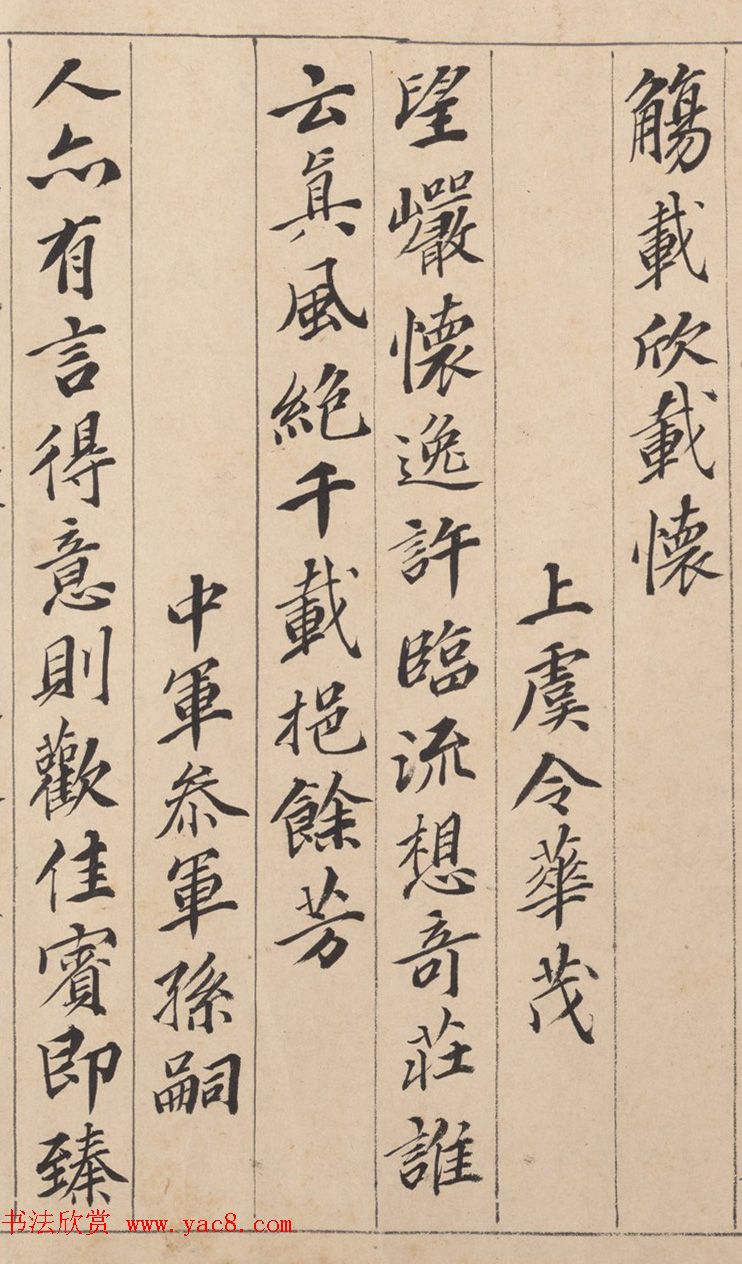 觴載欣載懷
上虞令華茂
望巖懷逸許臨流想奇莊誰
云真風絕千載挹餘芳
中軍參軍孫嗣
人亦有言得意則歡佳賓即臻
书法欣赏 www.yac8.com